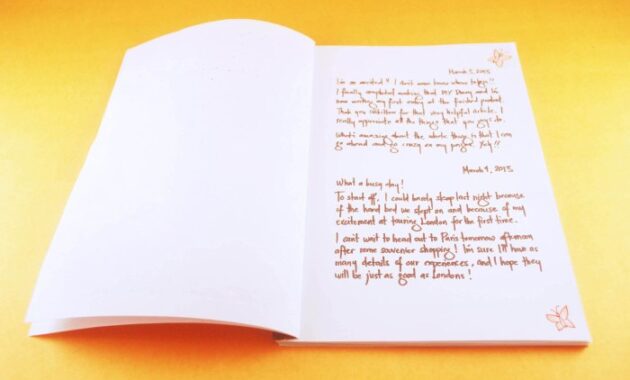 March 5, 2013
I'm so excited!! I don't even know where to begin!!
I finally completed making that DIY Diary and I'm
now writing my first entry at the finished product.
Thank you wikiHow for that very helpful article. I
really appreciate all the things that you guys do.
What's amazing about the whole thing is that I can
go ahead and go crazy on my pages. Yay!!
March 9, 2013
What a busy day!
To start off, I could barely sleep last night because
of the hard bed we slept on and because of my
excitement at touring London for the first time.
I can't wait to head out to Paris tomorrow afternoon
after some souvenier shopping! I'm sure I'll have as
many details of our experiences, and I hope they
will be just as good as Londons!